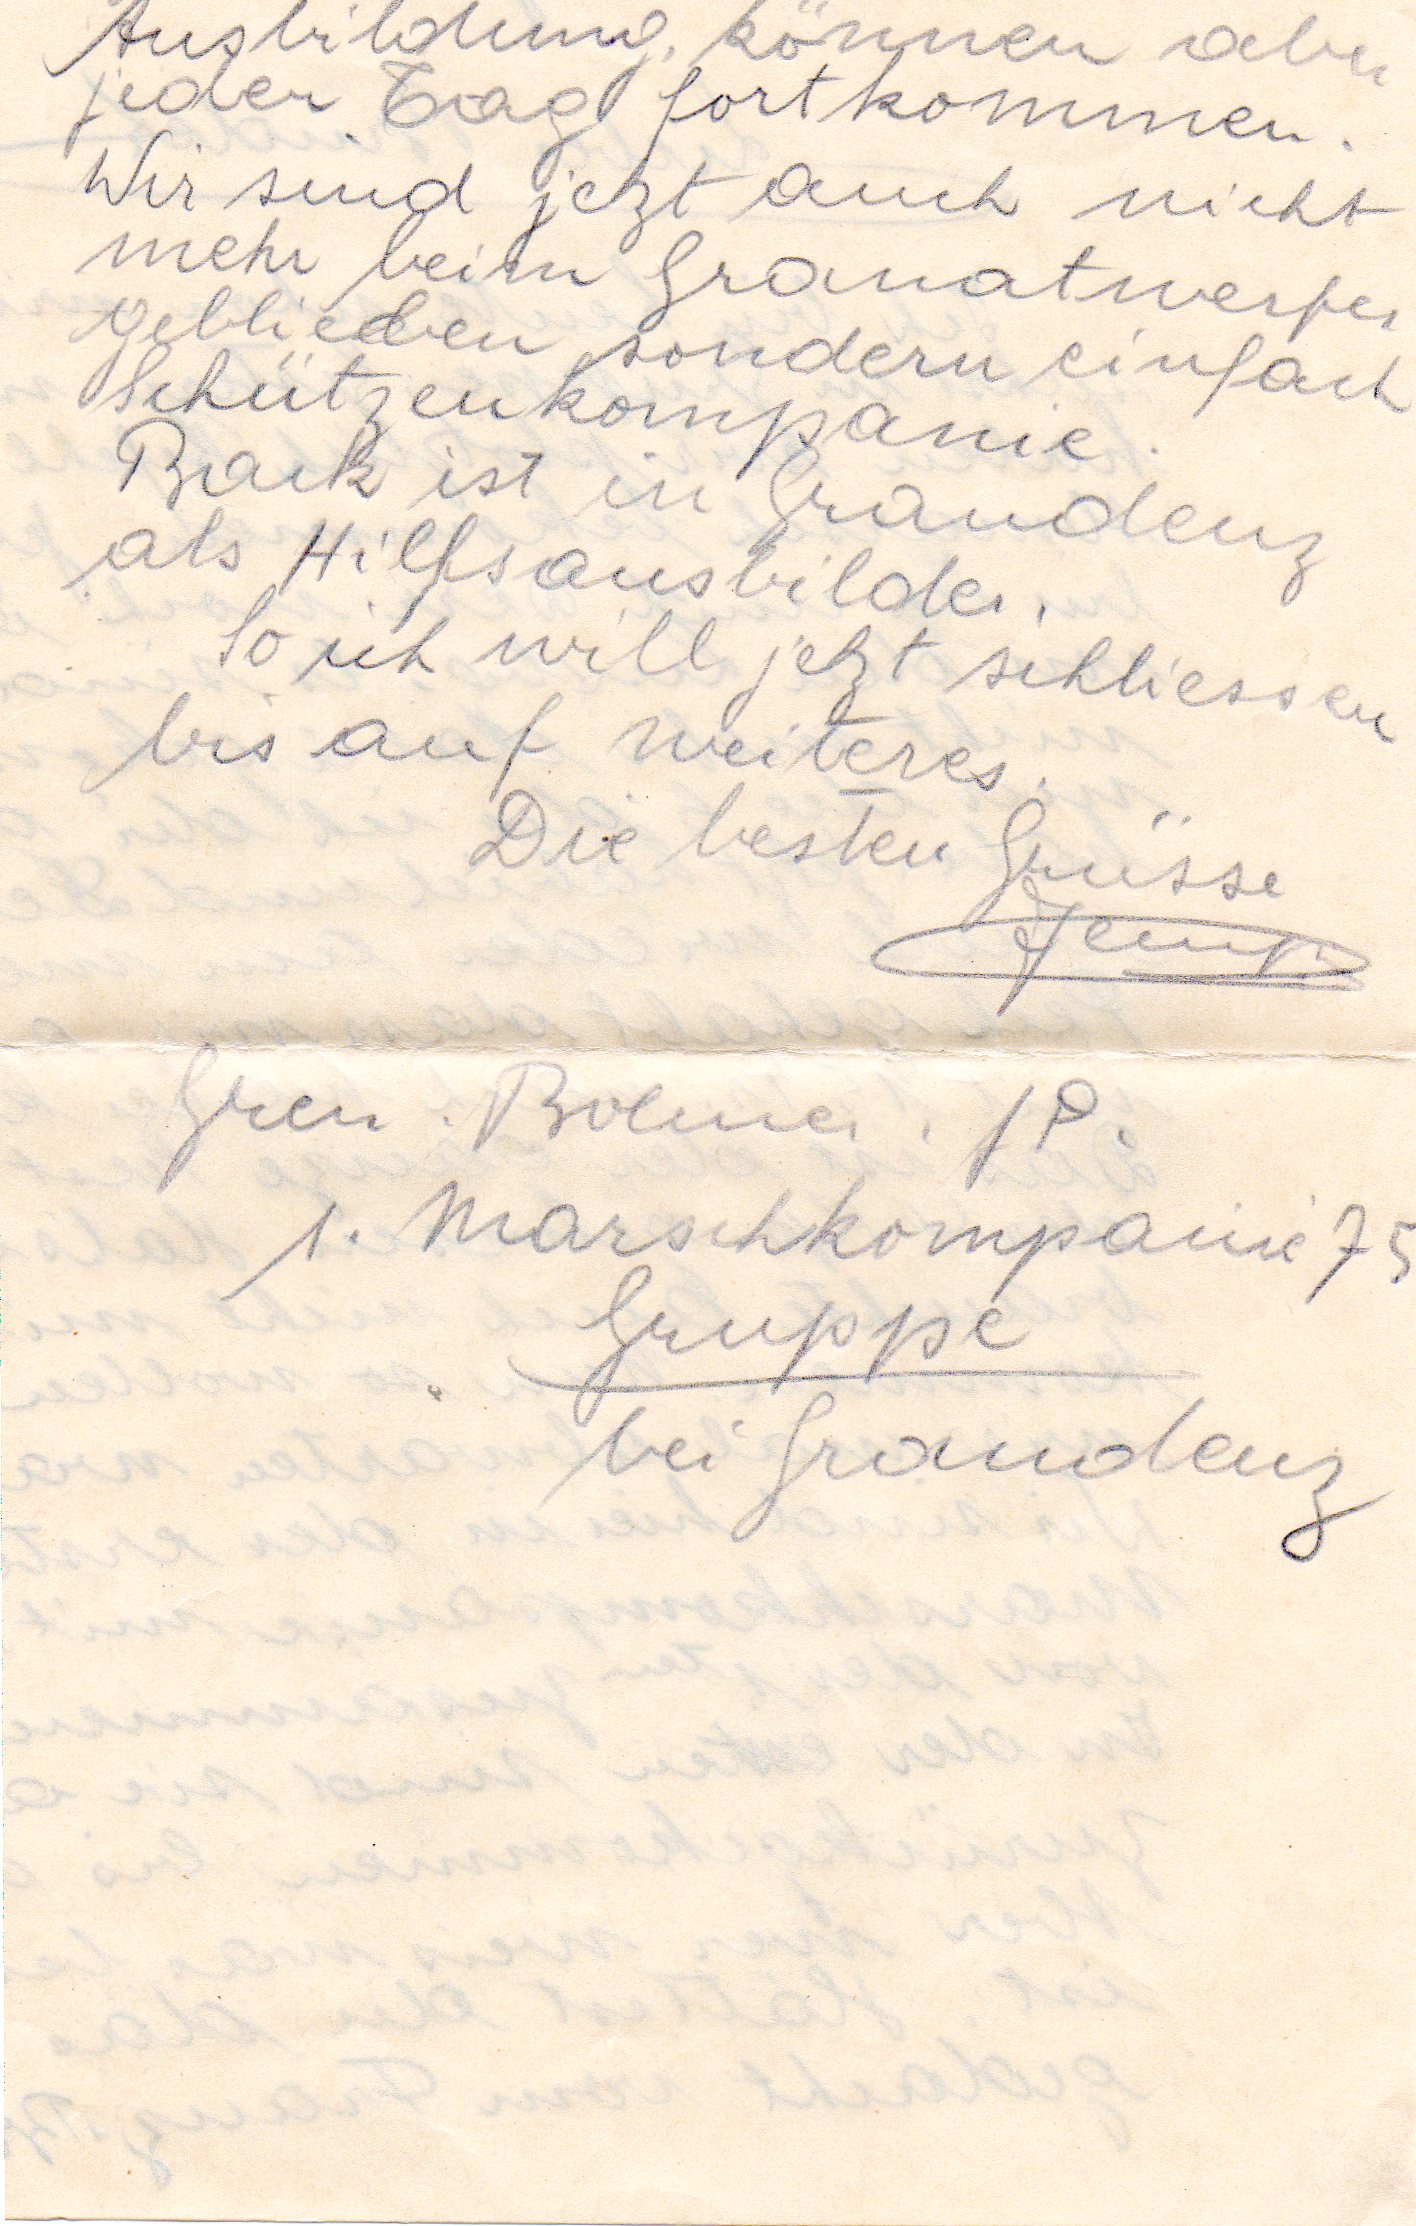 Ausbildung, können aber
jeder Tag fortkommen.
Wir sind jetzt auch nicht
mehr beim Granatwerfer
geblieben sondern einfach
Schützenkompanie.
Back ist in Graudenz
als Hilfsausbilder.
So ich will jetzt schliessen
bis auf weiteres.
Die besten Grüsse
Jemp.
Gren. Bolmer. JP.
1. Marschkompanie 75
Gruppe
bei Graudenz